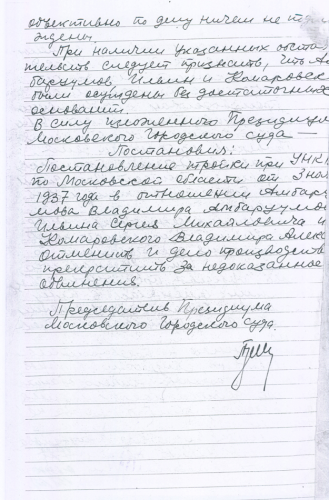 объективно по делу ничем не подтвер
ждены.
При наличии указанных обсто
тельств следует признать, что Ам
барцумов, Ильин и Комаровск
были осуждены без достаточных
оснований.
В силу изложенного Президиум
Московского Городского суда —
Постановил:
Постановление тройки при УНКВ
по Московской области от 3 ноя
1937 года в отношении Амбарц
мова Владимира Амбарцумов
Ильина Сергея Михайловича и
Комаровского Владимира Алекс
отменить и дело производств
прекратить за недоказанное
обвинения.
Председатель Президиума
Московского Городского суда.